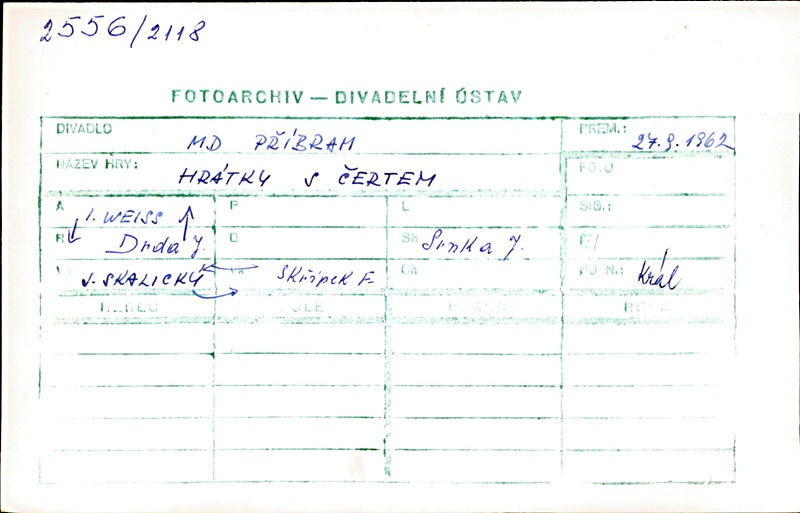 2556/2118
FOTOARCHIV — DIVADELNÍ ÚSTAV
DIVADLO MD PŘÍBRAM PREM.: 27.9.1962
NÁZEV HRY: HRÁTKY S ČERTEM FOTO
A I. WEISS P L SIG.:
R Drda J. D Sh Srnka J. F/
V J. SKALICKÝ K Skřípek F. Ch POZN.: Král
HEREC ROLE